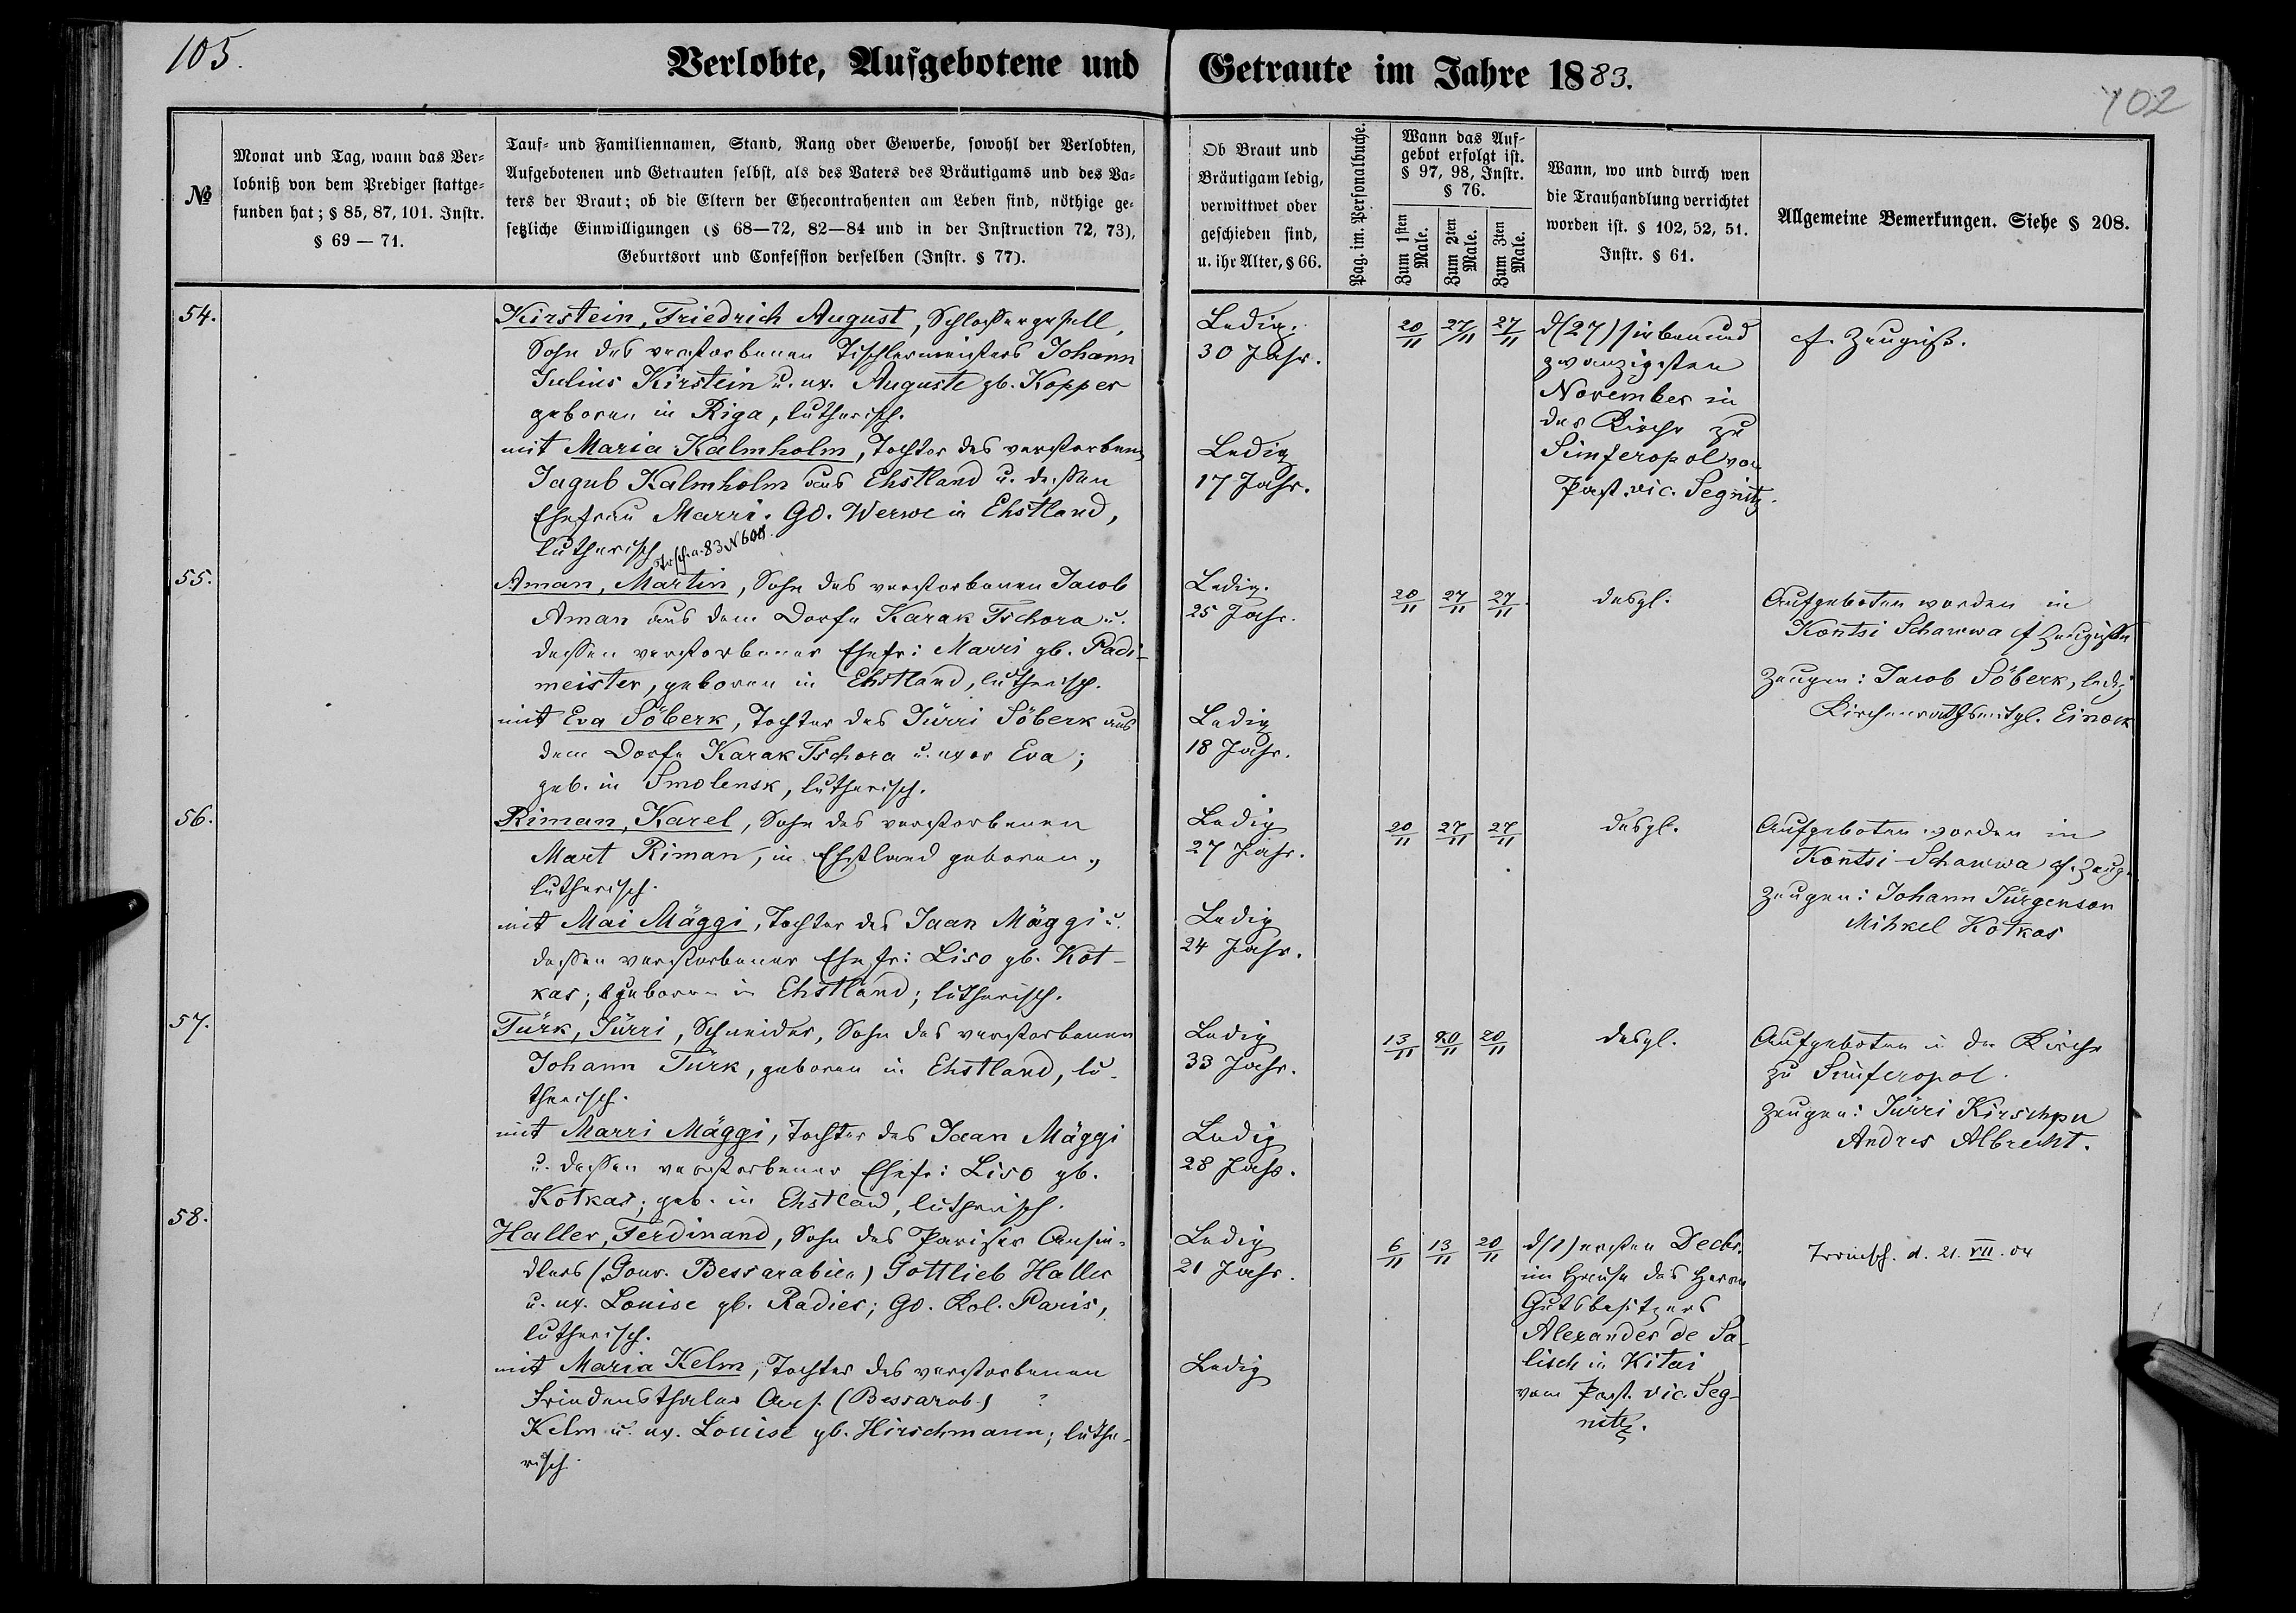 105.
Verlobte, Aufgebotene und Getraute im Jahre 1883.
102
№
Monat und Tag, wann das Ver=
lobniß von dem Prediger stattge=
funden hat; § 85, 87, 101. Instr.
§ 69 — 71.
Tauf= und Familiennamen, Stand, Rang oder Gewerbe, sowohl der Verlobten,
Aufgebotenen und Getrauten selbst, als des Vaters des Bräutigams und des Va=
ters der Braut; ob die Eltern der Ehecontrahenten am Leben sind, nöthige ge=
setzliche Einwilligungen (§ 68—72, 82—84 und in der Instruction 72, 73),
Geburtsort und Confession derselben (Instr. § 77).
Ob Braut und
Bräutigam ledig,
verwittwet oder
geschieden sind,
u. ihr Alter, § 66.
Pag. im. Personalbuche.
Wann das Auf-
gebot erfolgt ist.
§ 97, 98, Instr.
§ 76.
Zum 1sten Male.
Zum 2ten Male.
Zum 3ten Male.
Wann, wo und durch wen
die Trauhandlung verrichtet
worden ist. § 102, 52, 51.
Instr. § 61.
Allgemeine Bemerkungen. Siehe § 208.
54.
Kirstein, Friedrich August, Schlossergesell,
Sohn des verstorbenen Tischlermeisters Johann
Julius Kirstein u. ux. Auguste gb. Kopper
geboren in Riga, lutherisch.
mit Maria Kalmholm, Tochter des verstorben,
Jagub Kalmholm aus Ehstland u. dessen
Ehefrau Marri. GO. Werwe in Ehstland,
lutherisch
Ledig.
30 Jahr.
Ledig
17 Jahr.
20/11 27/11 27/11
d (27) siebenund
zwanzigsten
November in
der Kirche zu
Simferopol von
Past. vic. Segnitz.
cf. Zeugniß.
55.
a. 83 N 601.
Aman, Martin, Sohn des verstorbenen Jacob
Aman aus dem Dorfe Karak Tschora u.
dessen verstorbener Ehefr: Marri gb. Padi-
meister, geboren in Ehstland, lutherisch.
mit Eva Söberk, Tochter des Jürri Söberk aus
dem Dorfe Karak Tschora u. uxor Eva;
geb. in Smolensk, lutherisch.
Ledig.
25 Jahr.
Ledig
18 Jahr.
20/11 27/11 27/11.
desgl.
Aufgeboten worden in
Kontsi Schawwa cf Zeugniße
Zeugen: Jacob Söberk, ledig
Kirchenrathsmitgl. Einock
56.
Riman, Karel, Sohn des verstorbenen
Mart Riman, in Ehstland geboren,
lutherisch.
mit Mai Mäggi, Tochter des Jaan Mäggi u.
dessen verstorbener Ehefr: Liso gb. Kot-
kas; geboren in Ehstland; lutherisch.
Ledig
27 Jahr.
Ledig
24 Jahr.
20/11 27/11 27/11
desgl.
Aufgeboten worden in
Kontsi-Schawwa cf. Zeug.
Zeugen: Johann Jürgenson
Mihkel Kotkas
57.
Türk, Jürri, Schneider, Sohn des verstorbenen
Johann Türk, geboren in Ehstland, lu-
therisch.
mit Marri Mäggi, Tochter des Jaan Mäggi
u. dessen verstorbener Ehefr: Liso gb.
Kotkas; geb. in Ehstland, lutherisch.
Ledig
33 Jahr.
Ledig
28 Jahr.
13/11 20/11 20/11
desgl.
Aufgeboten in der Kirche
zu Simferopol.
Zeugen: Jürri Kirschpu
Andres Albrecht.
58.
Haller, Ferdinand, Sohn des Pariser Ansie-
dlers (Gouv. Bessarabien) Gottlieb Haller
u. ux. Louise gb. Radies; GO. Kol. Paris,
lutherisch.
mit Maria Kelm, Tochter des verstorbenen
Friedensthaler Ans. (Bessarab.) ?
Kelm u. ux. Louise gb. Hirschmann; luthe-
risch.
Ledig
21 Jahr.
Ledig
6/11 13/11 20/11
d (1) ersten Decbr.
im Hause des Herrn
Gutsbesitzers
Alexander de Sa-
lisch in Kitai
vom Past. vic. Seg-
nitz.
d. 21. VII. 04